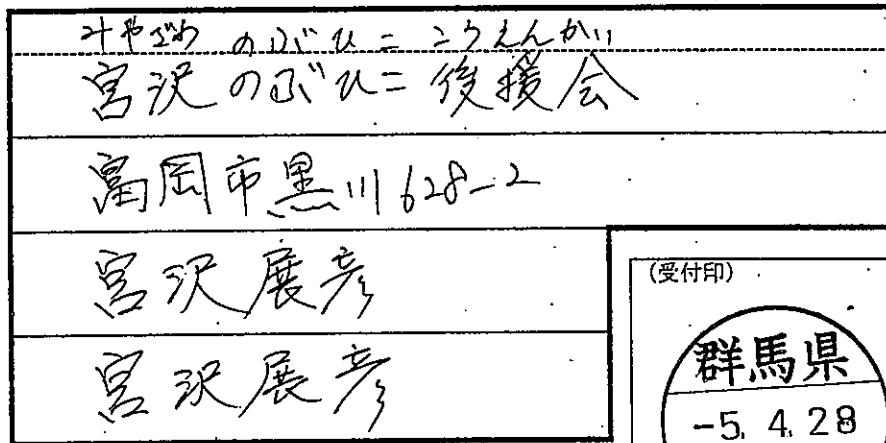 みやざわ のぶひこ こうえんかい
宮沢のぶひこ後援会
富岡市黒川628-2
宮沢展彦
宮沢展彦
(受付印)
群馬県
-5. 4. 28